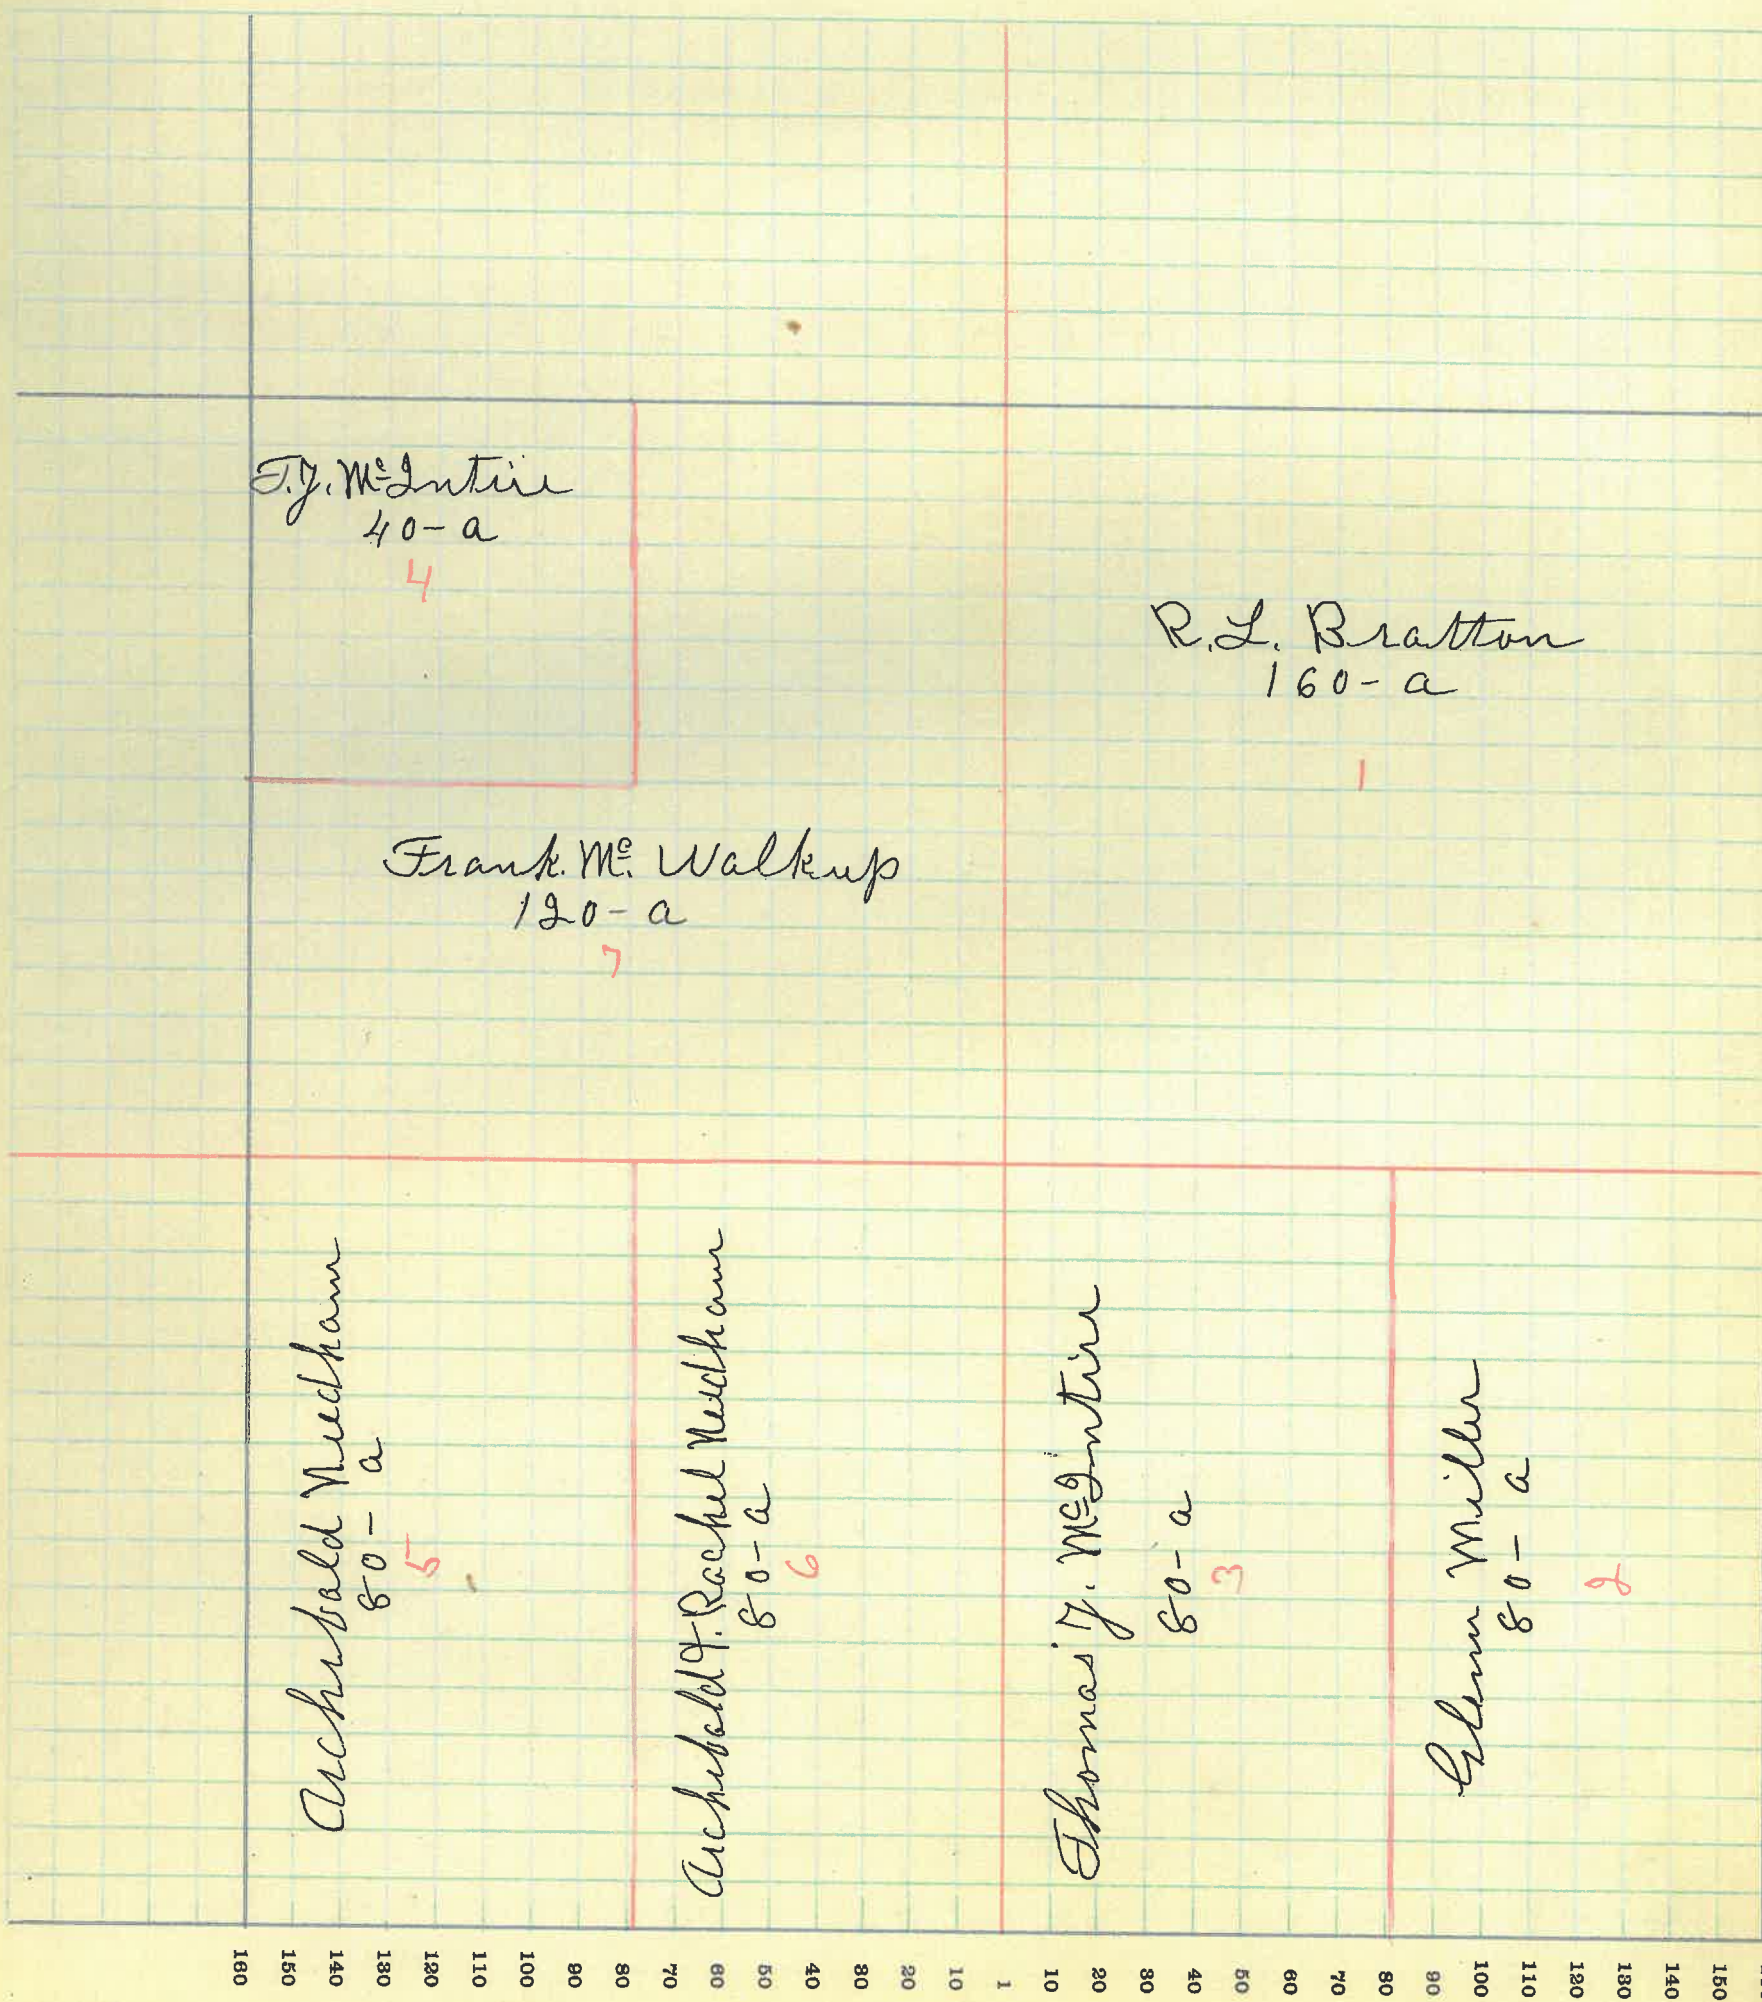 T.J. McIntire
40-a
4
R.L. Bratton
160-a
1
Frank. Mc. Walkup
120-a
7
Archibald Needham
80-a
5
Archibald & Rachel Needham
80-a
6
Thomas J. McIntire
80-a
3
Glenn Miller
80-a
2
160 150 140 130 120 110 100 90 80 70 60 50 40 30 20 10 1 10 20 30 40 50 60 70 80 90 100 110 120 130 140 150